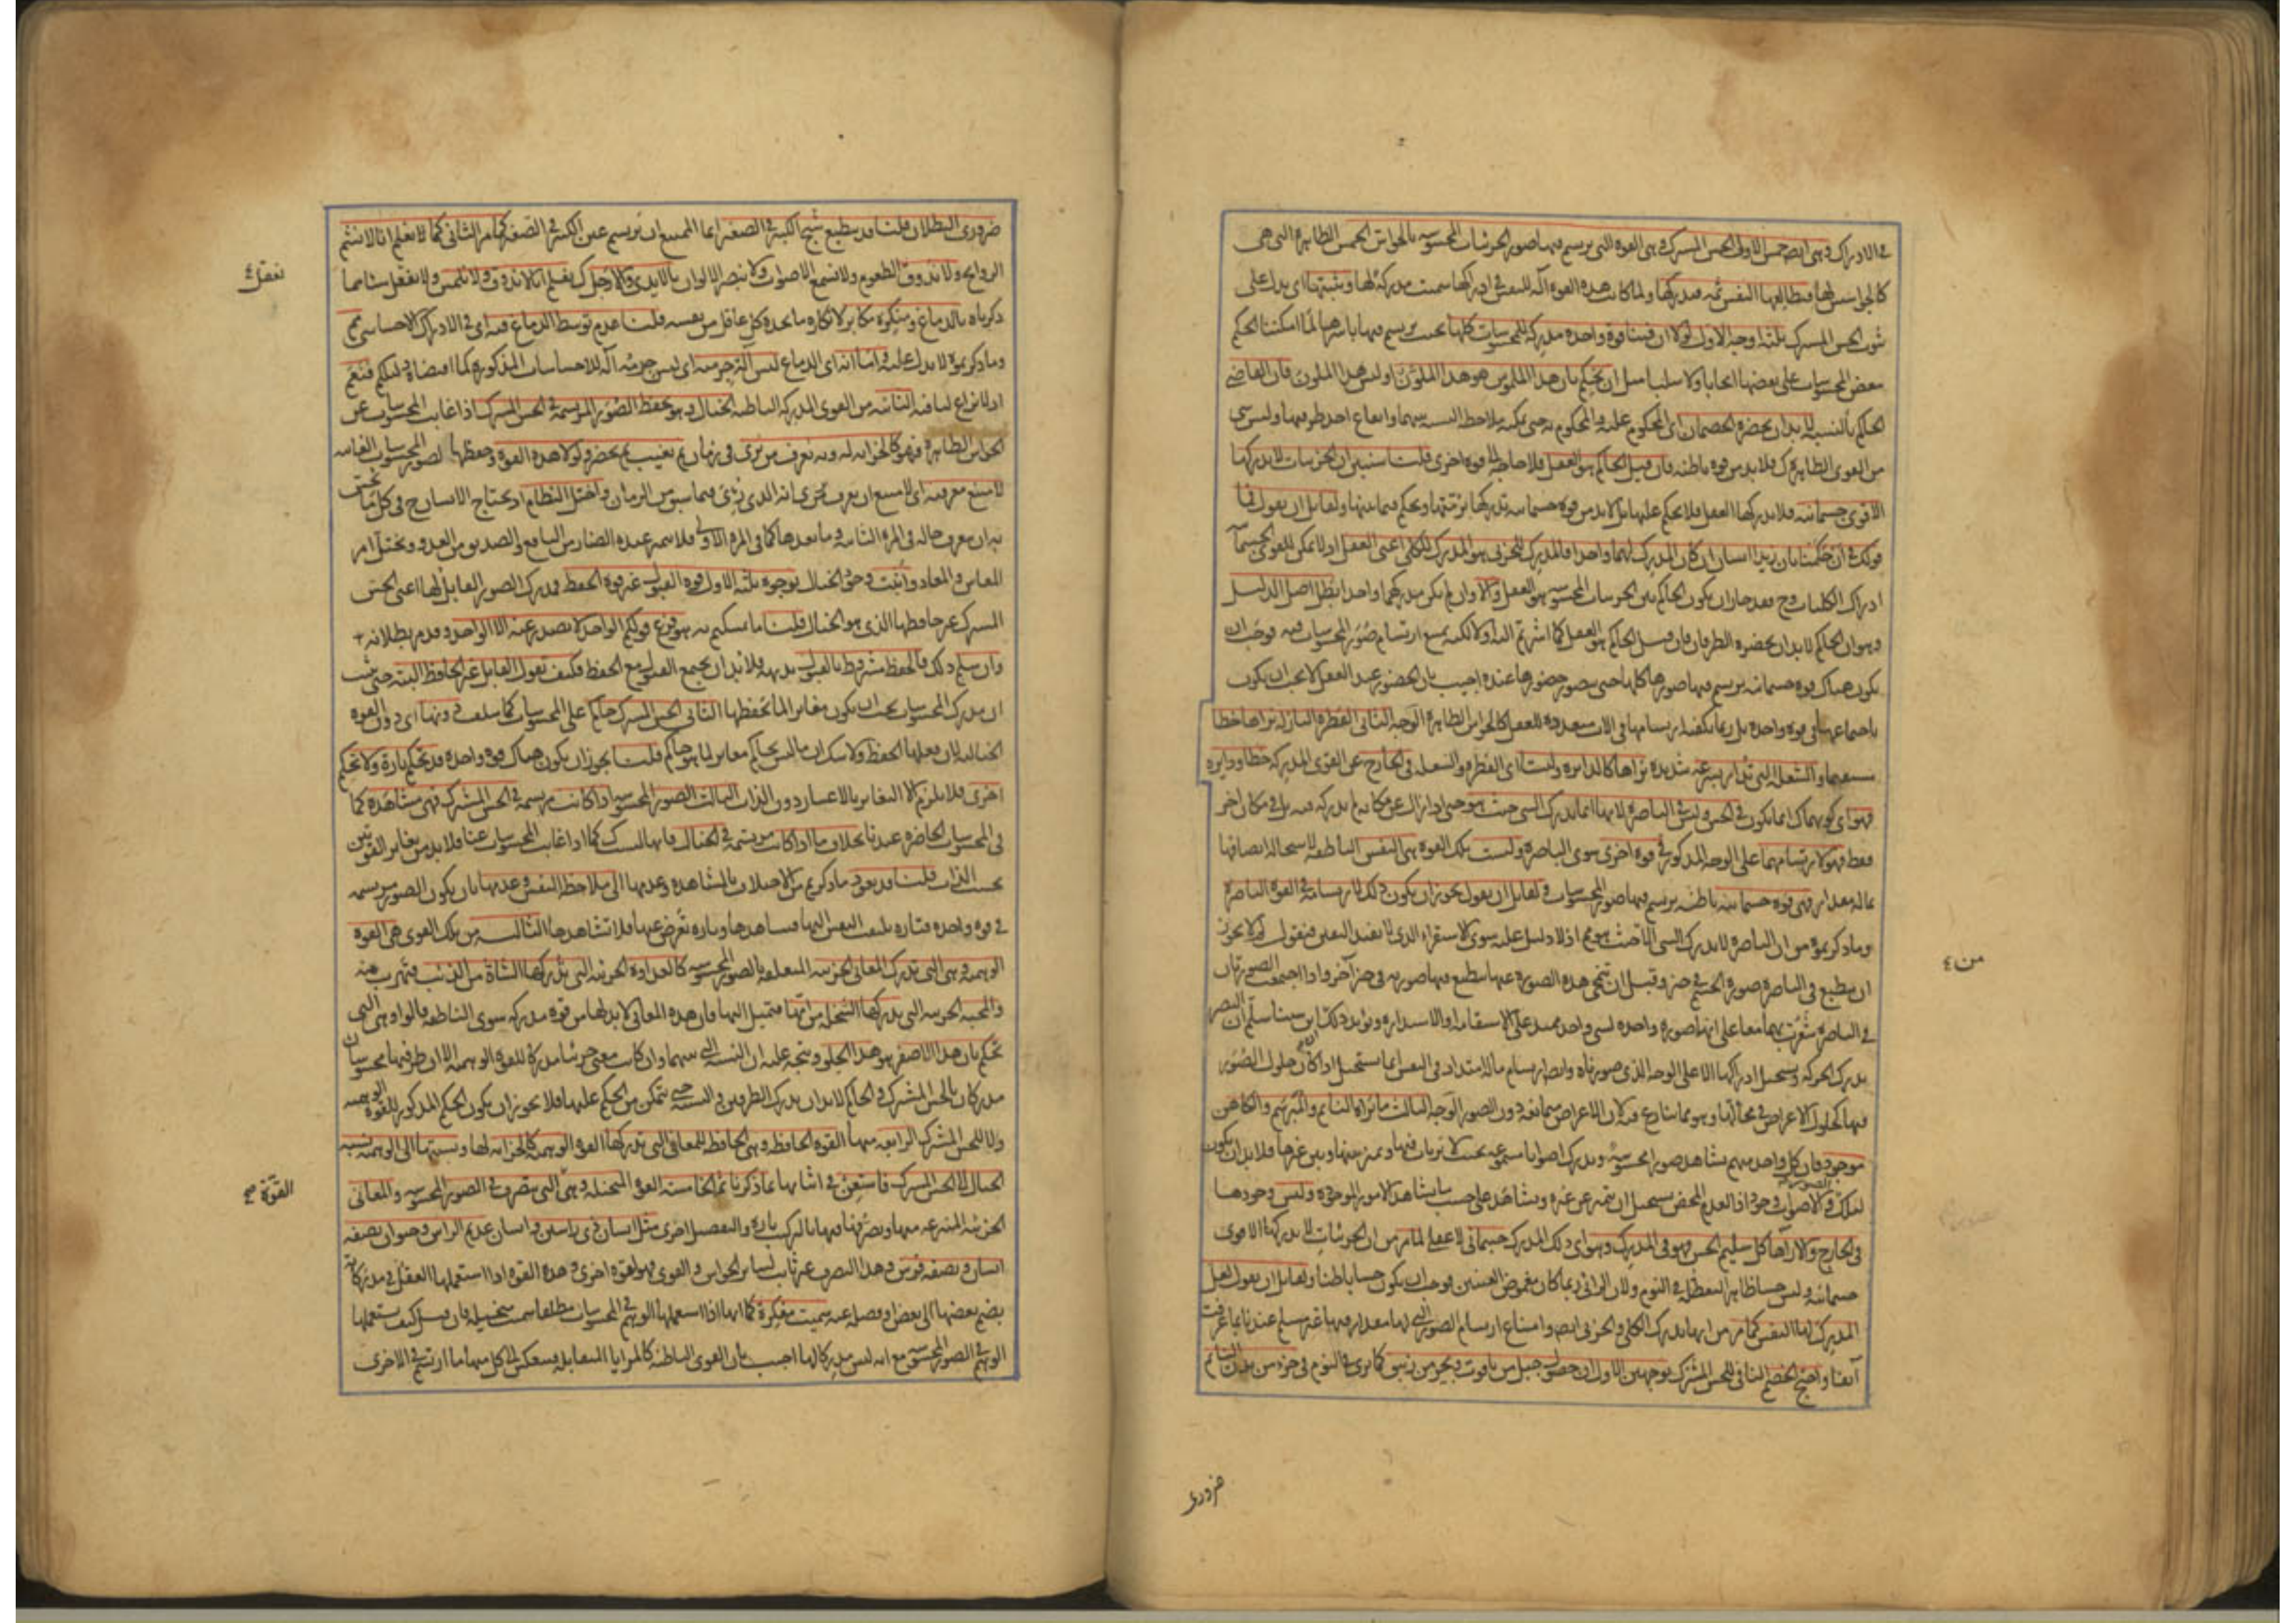 في الادراك وهي ايضا خمس الاولى الحس المشترك وهي القوة التي يرتسم فيها صور الجزئيات المحسوسة بالحواس الخمس الظاهرة التي هي
كالجواسيس لها فيطالعها النفس ثمه فيدركها ولما كانت هذه القوة آلة للنفس في ادراكها سميت مدركة لها ويثبتها اي يدل على
ثبوت الحس المشترك ثلثة اوجه الاول لولا ان فينا قوة واحدة مدركة للمحسوسات كلها بحيث يرتسم فيها باسرها لما امكننا الحكم
ببعض المحسوسات على بعضها ايجابا ولا سلبا مثل ان نحكم بان هذا الملموس هو هذا الملون او ليس هذا الملون فان القاضي
الحكم بالنسبة لا بد ان يحضره الخصمان اي المحكوم عليه والمحكوم به حتى يمكنه ملاحظة النسبة بينهما وايقاع احد طرفيها وليس شيء
من القوى الظاهرة ك فلا بد من قوة باطنة فان قيل الحاكم هو العقل فلا حاجة الى قوة اخرى قلنا سنبين ان الجزئيات لا يدركها
الا قوى جسمانية فلا يدركها العقل فلا يحكم عليها بل لا بد من قوة جسمانية تدركها برمتها ويحكم فيما بينها ولقائل ان يقول فما
قولك في ان حكمنا بان زيدا انسان ان كان المدرك لهما واحدا فالمدرك للجزئي هو المدرك للكلي اعني العقل اذ لا يمكن للقوى الجسمانية
ادراك الكليات وح فقد جاز ان يكون الحاكم بين الجزئيات المحسوسة هو العقل والا وان لم يكن مدركهما واحدا بطل اصل الدليل
وهو ان الحاكم لا بد ان يحضره الطرفان فان قيل الحاكم هو العقل كما اشرتم اليه ولكنه يمتنع ارتسام صور المحسوسات فيه فوجب ان
يكون هناك قوة جسمانية يرتسم فيها صورها كلها حتى يتصور حضورها عنده اجيب بان الحضور عند العقل لا يجب ان يكون
باجتماعها في قوة واحدة بل ربما يكفيه ارتسامها في آلات متعددة للعقل كالحواس الظاهرة الوجه الثاني القطرة النازلة نراها خطا
مستقيما والشعلة التي تدار بسرعة شديدة نراها كالدائرة وليستا اي القطرة والشعلة في الخارج عن القوى المدركة خطا ودائرة
فهو اي كونهما ك انما يكون في الحس وليس في الباصرة لانها انما يدرك الشيء حيث هو حتى اذا زال عن مكانه لم يدركه فيه بل في مكان آخر
فقط فهو لارتسامهما على الوجه المذكور في قوة اخرى سوى الباصرة وليست تلك القوة هي النفس الناطقة لاستحالة اتصافها
بما له مقدار فهي قوة جسمانية باطنة يرتسم فيها صور المحسوسات ولقائل ان يقول يجوز ان يكون ذلك لارتسامه في القوة الباصرة
وما ذكرتموه من ان الباصرة لا يدرك الشيء الا حيث هو مم اذ لا دليل عليه سوى الاستقراء الذي لا يفيد اليقين فنقول لم لا يجوز
ان ينطبع في الباصرة صورة الجسم في حيز وقبل ان تمحى هذه الصورة عنها ينطبع فيها صورته في حيز آخر واذا اجتمعت الصورتان
في الباصرة شعرت بهما معا على انهما صورة واحدة لشيء واحد ممتد على الاستقامة او الاستدارة ويؤيد ذلك ابن سينا سلم ان البصر
يدرك الحركة ويستحيل ادراكها الا على الوجه الذي صورناه وايضا ارتسام ما له امتداد في النفس انما يستحيل اذا كان حلول الصور
فيها كحلول الاعراض في محالها وهو مما ينازع فيه لان الاعراض متمانعة دون الصور الوجه الثالث ما نراه النائم والمبرسم والكاهن
موجود فان كل واحد منهم يشاهد صورا محسوسة ويدرك اصواتا مسموعة بحيث لا يرتاب فيها ويميز بينها وبين غيرها فلا بد ان يكون
لتلك الصور والاصوات وجود اذ العدم المحض يستحيل ان يتميز عن غيره ويشاهد على حسب ما يشاهد الامور الموجودة وليس وجودها
في الخارج والا رآها كل سليم الحس فهو في المدرك وهو اي ذلك المدرك جسماني لا عقلي لما مر من ان الجزئيات لا يدركها الا قوى
جسمانية وليس حسا ظاهرا لتعطله في النوم ولان الرائي ربما كان مغموض العينين فوجب ان يكون حسا باطنا ولقائل ان يقول لعل
المدرك لها النفس كما مر من انها تدرك الكلي والجزئي ايضا وامتناع ارتسام الصور التي لها مقدار فيها غير مسلم عندنا لما عرفت
آنفا واحتج الخصم النافي للحس المشترك بوجهين الاول ان حصول جبل من ياقوت وبحر من زيبق كما يرى في النوم في جزء من بدن النائم
من ع
ضروري
ضروري البطلان قلنا قد ينطبع شبح الكبير في الصغير انما الممتنع ان يرتسم عين الكبير في الصغير كما مر الثاني كما لا نعلم انا لا نشم
الروايح ولا نذوق الطعوم ولا نسمع الاصوات ولا نبصر الالوان بالايدي والارجل ك نعلم انا لا نذوق ولا نلمس ولا نعقل شيئا مما
ذكرناه بالدماغ ومنكره مكابر لانكاره ما يجده كل عاقل من نفسه قلنا عدم توسط الدماغ فيه اي في الادراك الاحساسي مم
وما ذكرتموه لا يدل عليه واما انه اي الدماغ ليس آلة جزمية اي ليس جزمه آلة للاحساسات المذكورة كما اقتضاه دليلكم فنعم
اذ لا نزاع لنا فيه الثانية من القوى المدركة الباطنة الخيال وهو يحفظ الصور المرتسمة في الحس المشترك اذا غابت المحسوسات عن
الحواس الظاهرة فهو كالخزانة له وبه نعرف من نرى في زمان ثم يغيب ثم يحضر ولولا هذه القوة وحفظها لصور المحسوسات الغائبة
لامتنع معرفته اي لامتنع ان يعرف مرئي انه الذي رئي فيما سبق من الزمان واختل النظام اذ يحتاج الانسان ح في كل ما يحس
به ان يعرف حاله في المرة الثانية وما بعدها كما في المرة الاولى فلا يتميز عنده الضار من النافع والصديق من العدو ويختل امر
المعاش والمعاد واثبت وجود الخيال بوجوه ثلثة الاول قوة القبول غير قوة الحفظ فمدرك الصور القابل لها اعني الحس
المشترك غير حافظها الذي هو الخيال قلنا ما تمسكتم به هو فرع قولكم الواحد لا يصدر عنه الا الواحد وقد مر بطلانه
وان سلم ذلك فالحفظ مشروط بالقبول بديهة فلا بد ان يجتمع القبول مع الحفظ فكيف تقول القابل غير الحافظ البتة حتى يثبت
ان مدرك المحسوسات يجب ان يكون مغايرا لما يحفظها الثاني الحس المشترك حاكم على المحسوسات كما سلف دونها اي دون القوة
الخيالية لان فعلها الحفظ ولا شك ان ما ليس بحاكم مغاير لما هو حاكم قلنا يجوز ان يكون هناك قوة واحدة قد تحكم تارة ولا تحكم
اخرى فلا يلزم الا التغاير بالاعتبار دون الذات الثالث الصور المحسوسة اذا كانت مرتسمة في الحس المشترك فهي مشاهدة كما
في المحسوسات الحاضرة عندنا بخلاف ما اذا كانت مرتسمة في الخيال فانها ليست ك كما اذا غابت المحسوسات عنا فلا بد من تغاير القوتين
بحسب الذات قلنا قد يعود ما ذكرتم من الاختلاف بالمشاهدة وعدمها الى ملاحظة النفس وعدمها بان يكون الصور مرتسمة
في قوة واحدة فتارة يلتفت النفس اليها فيشاهدها وتارة تعرض عنها فلا تشاهدها الثالثة من تلك القوى هي القوة
الوهمية وهي التي تدرك المعاني الجزئية المتعلقة بالصور المحسوسة كالعداوة الجزئية التي تدركها الشاة من الذئب فتهرب منه
والمحبة الجزئية التي يدركها السخلة من امها فتميل اليها فان هذه المعاني لا بد لها من قوة مدركة سوى الناطقة قالوا وهي التي
تحكم بان هذا الاصفر هو هذا الحلو ويتجه عليه ان النسبة التي بينهما وان كانت معنى جزئيا مدركا للقوة الوهمية الا ان طرفيها محسوسان
مدركان بالحس المشترك والحاكم لا بد ان يدرك الطرفين والنسبة حتى يتمكن من الحكم عليها فلا يجوز ان يكون الحكم المذكور للقوة الوهمية
ولا للحس المشترك الرابعة منها القوة الحافظة وهي الحافظة للمعاني التي تدركها القوة الوهمية كالخزانة لها ونسبتها الى الوهمية نسبة
الخيال الى الحس المشترك فاستعن في اثباتها بما ذكرنا ثم الخامسة القوة المتخيلة وهي التي يتصرف في الصور المحسوسة والمعاني
الجزئية المنتزعة منها وتصرفها فيها بالتركيب تارة والتفصيل اخرى مثل انسان ذي راسين وانسان عديم الراس وحيوان نصفه
انسان ونصفه فرس وهذا التصرف غير ثابت لسائر الحواس والقوى فهو لقوة اخرى وهذه القوة اذا استعملها العقل في مدركاته
يضم بعضها الى بعض او فصله عنه سميت مفكرة كما انها اذا استعملها الوهم في المحسوسات مطلقا سميت متخيلة فان قيل كيف يستعملها
الوهم في الصور المحسوسة مع انه ليس مدركا لها اجيب بان القوى الباطنة كالمرايا المتقابلة فينعكس الى كل منها ما ارتسم في الاخرى
نعقل ع
القوة صح